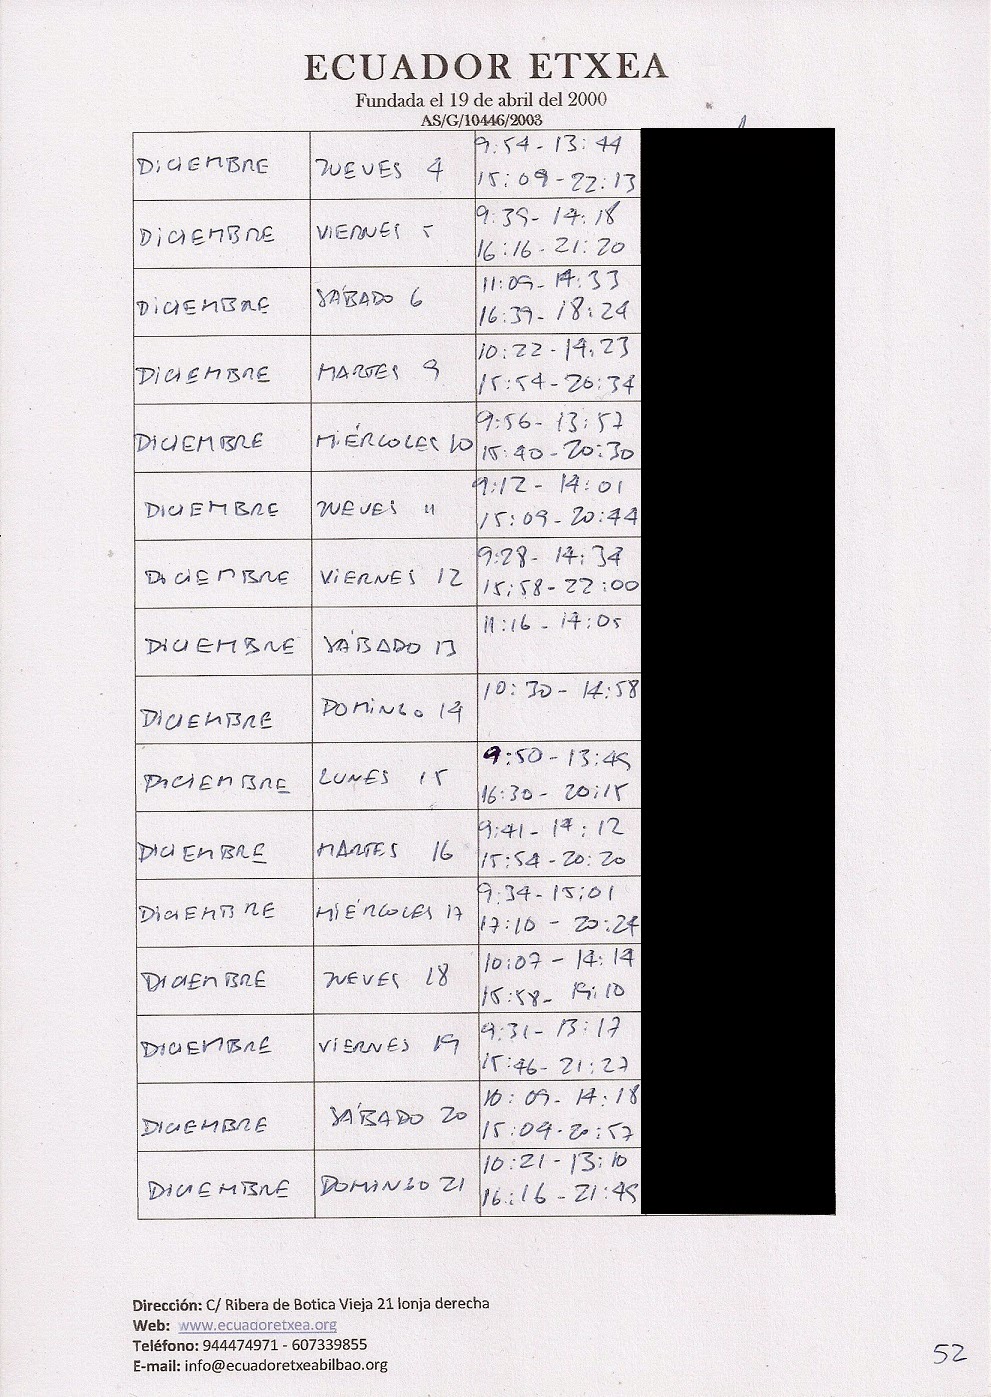 ECUADOR ETXEA
Fundada el 19 de abril del 2000
AS/G/10446/2003
DICIEMBRE JUEVES 4 9:54-13:44
15:09-22:13
DICIEMBRE VIERNES 5 9:39-14:18
16:16-21:20
DICIEMBRE SÁBADO 6 11:09-14:33
16:39-18:24
DICIEMBRE MARTES 9 10:22-14:23
15:54-20:34
DICIEMBRE MIÉRCOLES 10 9:56-13:57
15:40-20:30
DICIEMBRE JUEVES 11 9:12-14:01
15:09-20:44
DICIEMBRE VIERNES 12 9:28-14:34
15:58-22:00
DICIEMBRE SÁBADO 13 11:16-14:05
DICIEMBRE DOMINGO 14 10:30-14:58
DICIEMBRE LUNES 15 9:50-13:45
16:30-20:15
DICIEMBRE MARTES 16 9:41-14:12
15:54-20:20
DICIEMBRE MIÉRCOLES 17 9:34-15:01
17:10-20:24
DICIEMBRE JUEVES 18 10:07-14:14
15:58-19:10
DICIEMBRE VIERNES 19 9:31-13:17
15:46-21:27
DICIEMBRE SÁBADO 20 10:09-14:18
15:09-20:57
DICIEMBRE DOMINGO 21 10:21-13:10
16:16-21:45
Dirección: C/ Ribera de Botica Vieja 21 lonja derecha
Web: www.ecuadoretxea.org
Teléfono: 944474971 - 607339855
E-mail: info@ecuadoretxeabilbao.org
52